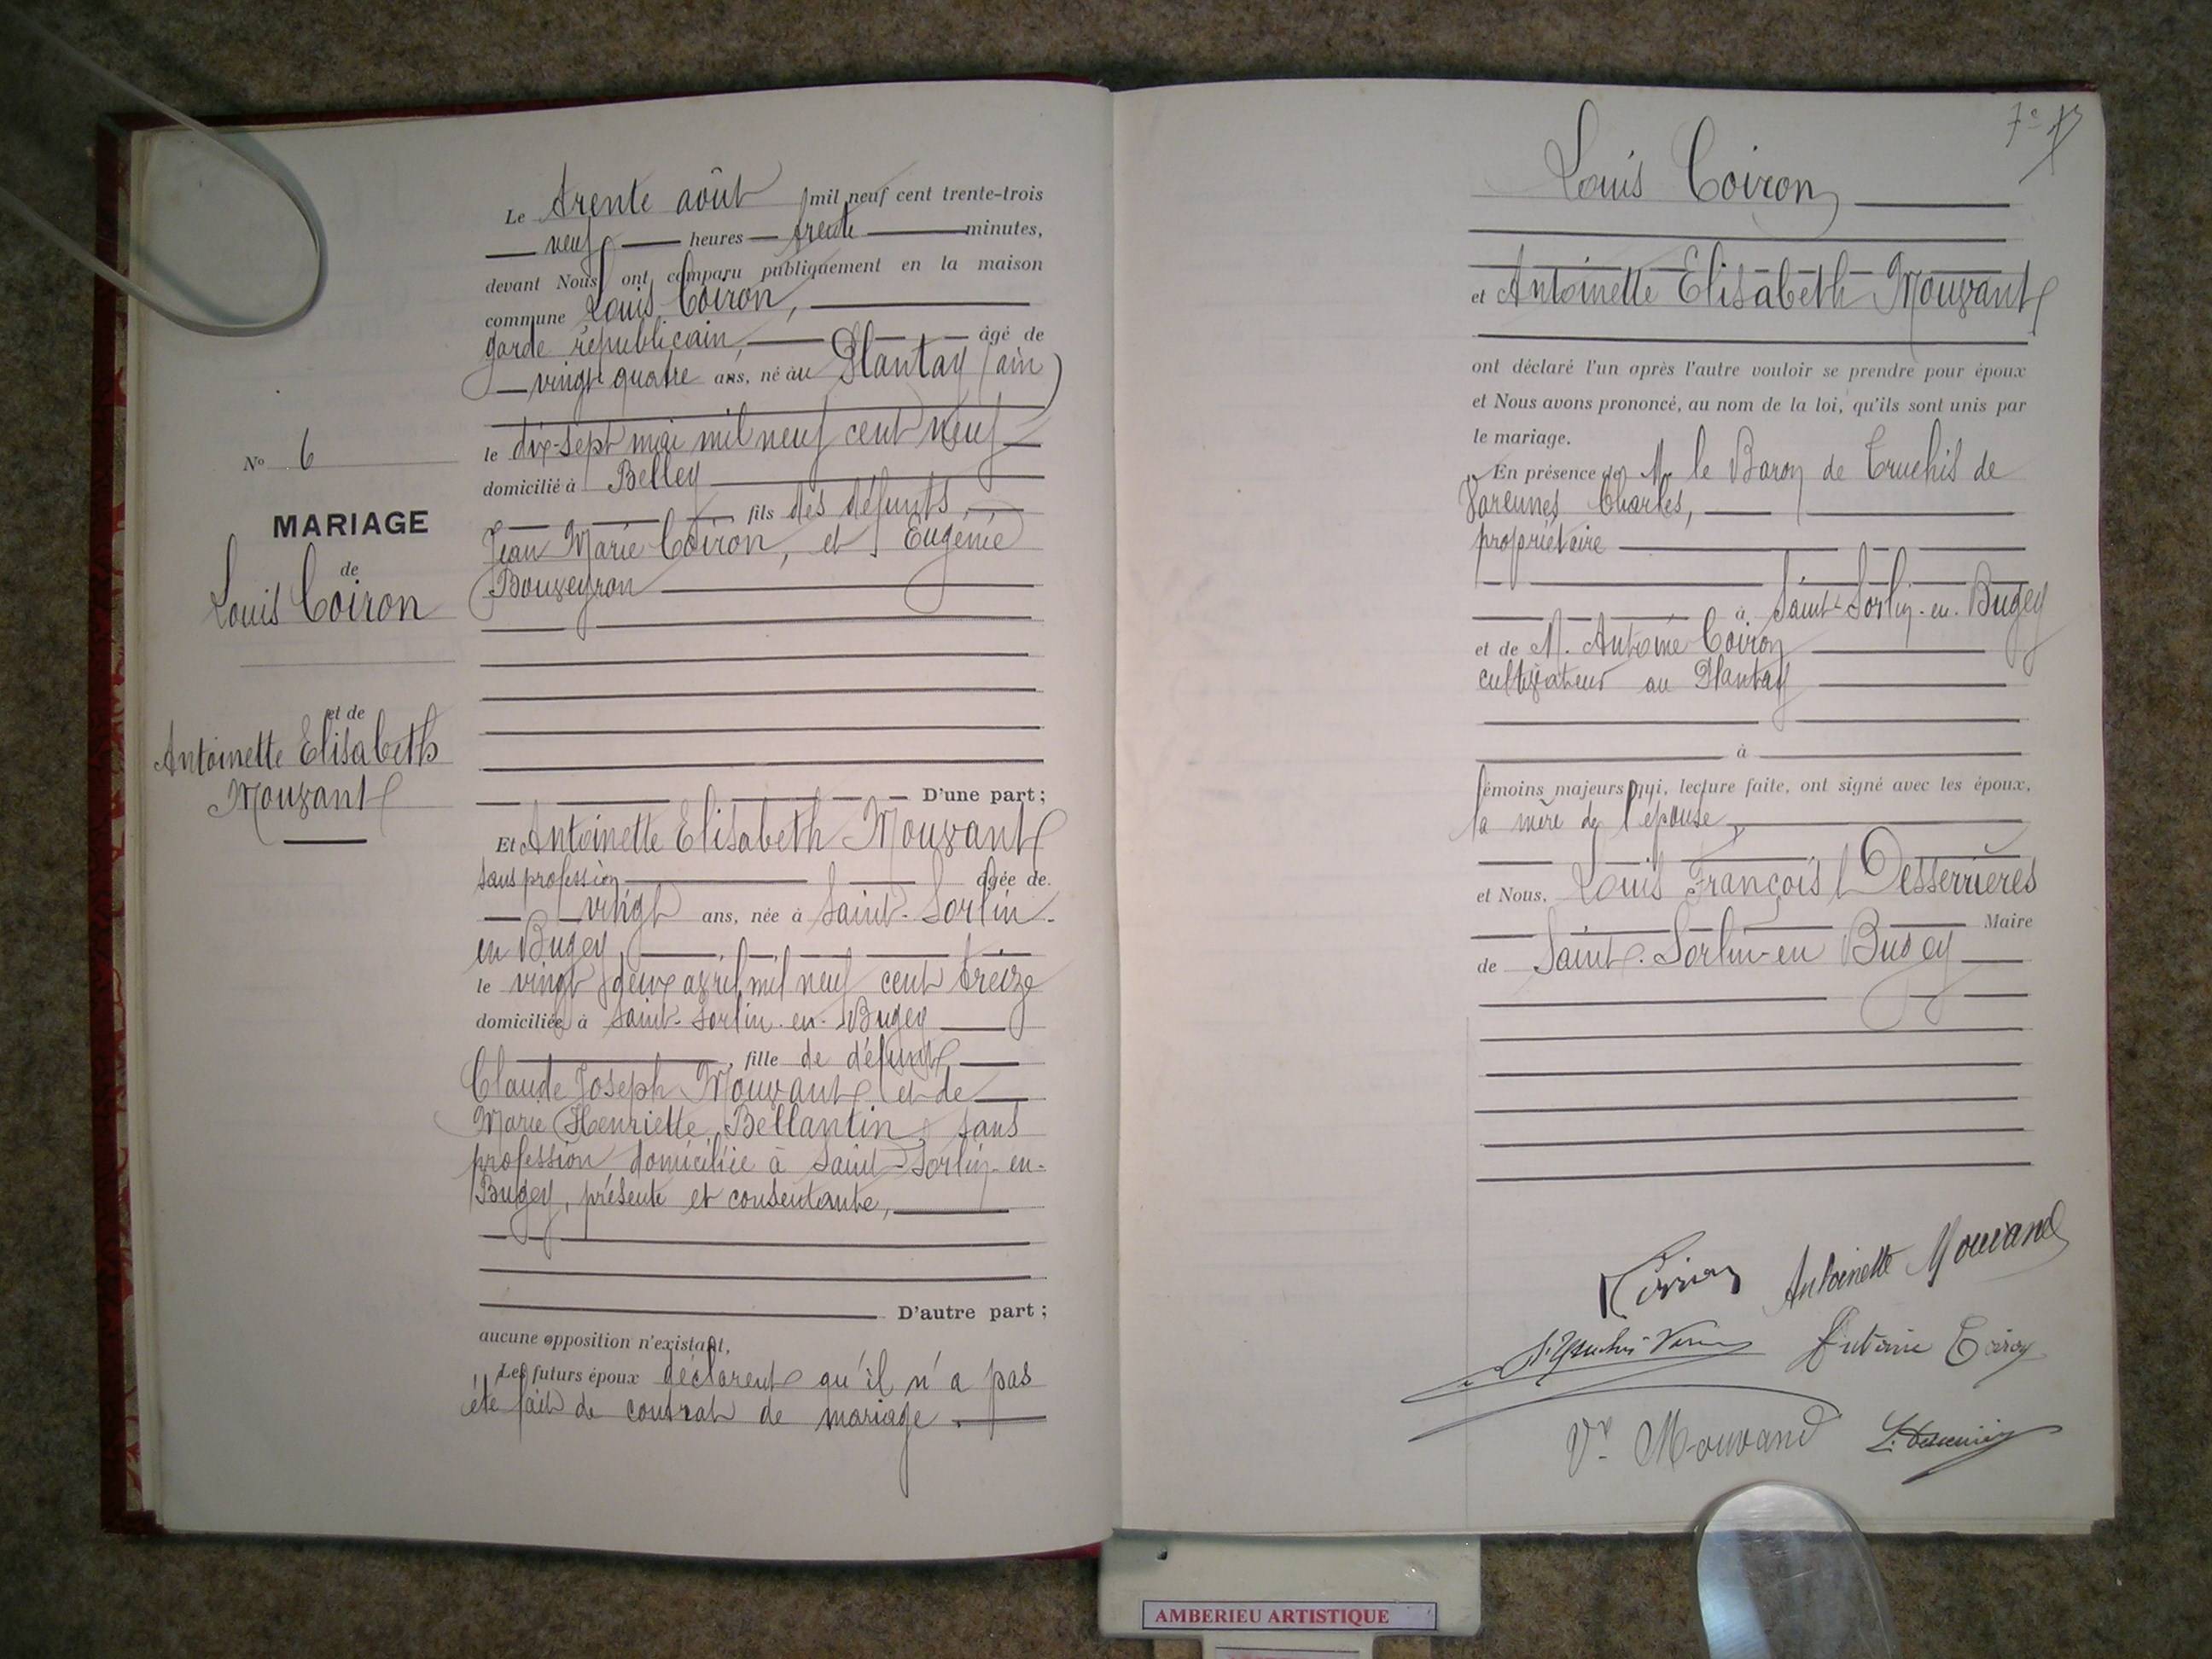 N° 6
MARIAGE
de
Louis Coiron
et de
Antoinette Elisabeth
Mouvant
Le trente août mil neuf cent trente-trois
neuf heures trente minutes,
devant Nous ont comparu publiquement en la maison
commune Louis Coiron,
garde républicain, âgé de
vingt quatre ans, né au Plantay (ain)
le dix-sept mai mil neuf cent neuf
domicilié à Belley
fils des défunts,
Jean Marie Coiron, et Eugénie
Bouveyron
D'une part;
Et Antoinette Elisabeth Mouvant
sans profession âgée de
vingt ans, née à Saint-Sorlin-
en Bugey
le vingt deux avril mil neuf cent treize
domiciliée à Saint-Sorlin-en-Bugey
, fille de défunt
Claude Joseph Mouvant et de
Marie Henriette Bellantin, sans
profession domiciliée à Saint-Sorlin-en-
Bugey, présente et consentante,
D'autre part;
aucune opposition n'existant,
Les futurs époux déclarent qu'il n'a pas
été fait de contrat de mariage.
7e
Louis Coiron
et Antoinette Elisabeth Mouvant
ont déclaré l'un après l'autre vouloir se prendre pour époux
et Nous avons prononcé, au nom de la loi, qu'ils sont unis par
le mariage.
En présence de M. le Baron de Truchis de
Varennes Charles,
propriétaire
à Saint-Sorlin-en-Bugey
et de M. Antoine Coiron
cultivateur au Plantay
à
témoins majeurs qui, lecture faite, ont signé avec les époux,
la mère de l'épouse,
et Nous, Louis François Desserrières
Maire
de Saint-Sorlin-en Bugey
Coiron
Antoinette Mouvand
Antoine Coiron
Vve Mouvand
AMBERIEU ARTISTIQUE